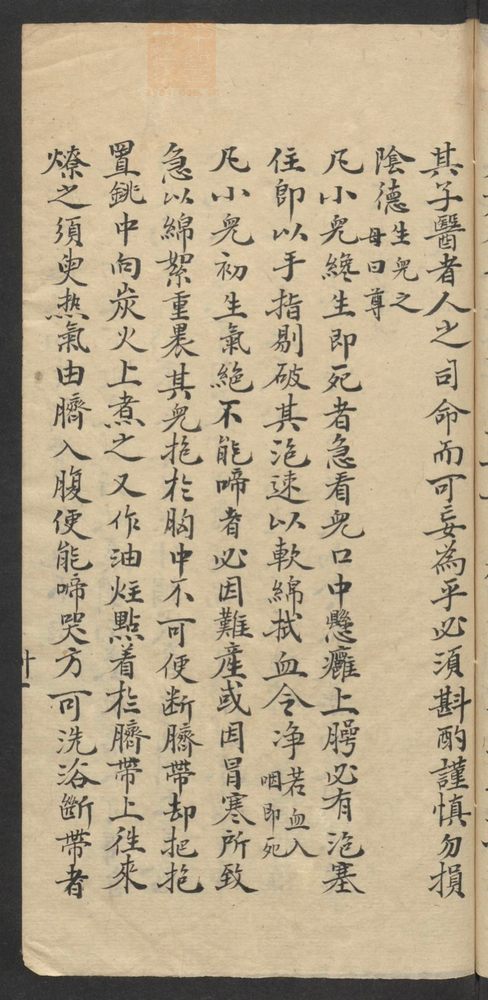 其子醫者人之司命而可妄為乎必須斟酌謹慎勿損
陰德生兒之母曰尊
凡小兒纔生即死者急看兒口中懸癰上腭必有泡塞
住即以手指剔破其泡速以軟綿拭血令净若血入咽即死
凡小兒初生氣絶不能啼者必因難產或因冒寒所致
急以綿絮重裹其兒抱於胸中不可便断臍帶却把抱
置銚中向炭火上煮之又作油炷點着於臍帶上徃來
燎之須臾热氣由臍入腹便能啼哭方可洗浴斷帶者